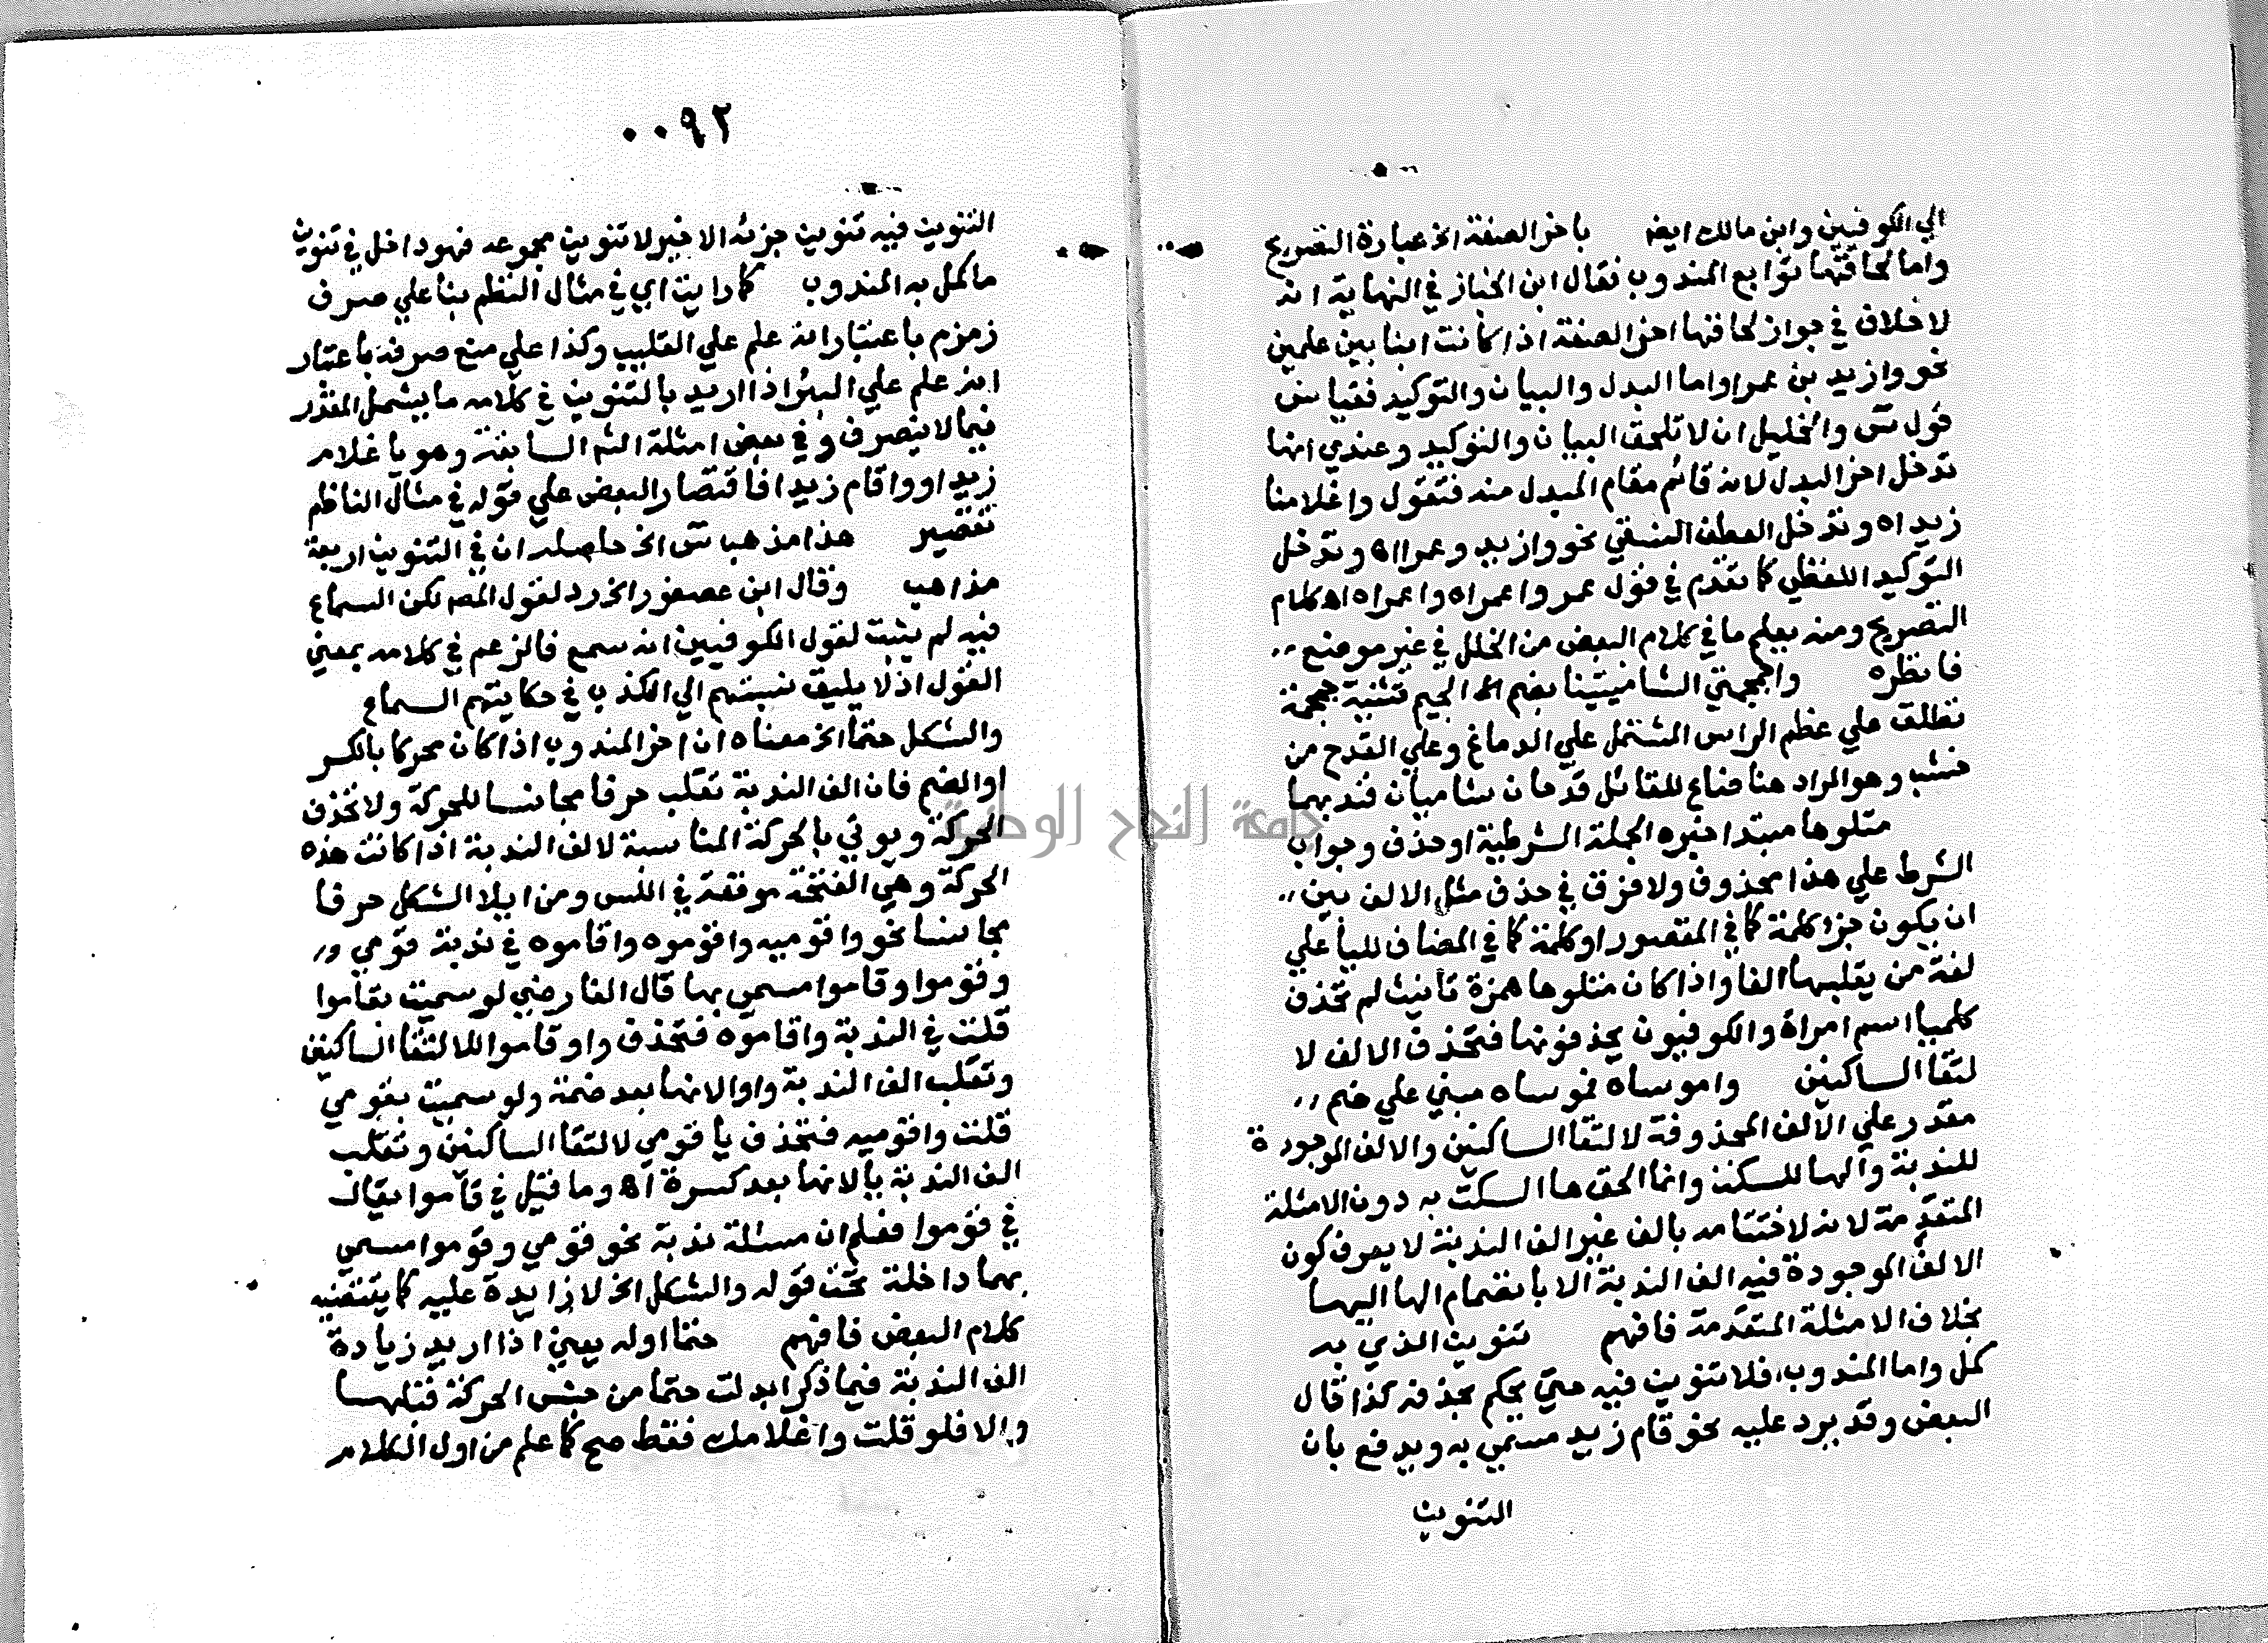 الي الكوفيين وابن مالك ايضا باخر الصفة الخ عبارة التصريح
واما لحاقها توابع المندوب فقال ابن الخباز في النهاية انه
لا خلاف في جواز لحاقها اخر الصفة اذا كانت ابنا بين علمين
نحو وازيد بن عمرا واما البدل والبيان والتوكيد فقياس
قول س والخليل ان لا تلحق البيان والتوكيد وعندي انها
تدخل اخر البدل لانه قائم مقام المبدل منه فتقول واغلامنا
زيداه وتدخل العطف النسقي نحو وازيد وعمراه وتدخل
التوكيد اللفظي كما تقدم في قول عمر واعمراه واعمراه اه كلام
التصريح ومنه يعلم ما في كلام البعض من الخلل في غير موضع
فانظره واجمجمتي الشاميتينا بضم الجيم تثنية جمجمة
تطلق علي عظم الراس المشتمل علي الدماغ وعلي القدح من
خشب وهو المراد هنا ضاع للقائل قدحان شاميان فندبهما
متلوها مبتدا خبره الجملة الشرطية او حذف وجواب
الشرط علي هذا محذوف ولا فرق في حذف مثل الالف بين
ان يكون جزا كلمة كما في المقصور او كلمة كما في المضاف للياء علي
لغة من يقلبها الفا واذا كان متلوها همزة تأنيث لم تحذف
كلميا اسم امراة والكوفيون يحذفونها فتحذف الالف لا
لتقا الساكنين واموساه فموساه مبني علي ضم
مقدر علي الالف المحذوفة لالتقا الساكنين والالف الموجودة
للندبة والها للسكت وانما الحق ها السكت به دون الامثلة
المتقدمة لانه لاختتامه بالف غير الف الندبة لا يعرف كون
الالف الموجودة فيه الف الندبة الا بانضمام الها اليها
بخلاف الامثلة المتقدمة فافهم تنوين الذي به
كمل واما المندوب فلا تنوين فيه حتي يحكم بحذفه كذا قال
البعض وقد يرد عليه نحو قام زيد مسمي به ويدفع بان
التنوين
٠٠٩٢
التنوين فيه تنوين جزئه الاخير لا تنوين مجموعه فهو داخل في تنوين
ما كمل به المندوب كما رايت اي في مثال النظم بنا علي صرف
زمزم باعتبار انه علم علي القليب وكذا علي منع صرفه باعتبار
انه علم علي البئر اذا اريد بالتنوين في كلامه ما يشمل المقدر
فيما لا ينصرف وفي بعض امثلة الشم السابقة وهو يا غلام
زيدا ووا قام زيدا فاقتصار البعض علي قوله في مثال الناظم
تقصير هذا مذهب س الخ حاصله ان في التنوين اربعة
مذاهب وقال ابن عصفور الخ رد لقول المصم لكن السماع
فيه لم يثبت لقول الكوفيين انه سمع فالزعم في كلامه بمعني
القول اذ لا يليق نسبتهم الي الكذب في حكايتهم السماع
والشكل حتما الخ معناه ان اخر المندوب اذا كان محركا بالكسر
او الضم فان الف الندبة تقلب حرفا مجانسا للحركة ولا تحذف
الحركة ويوتي بالحركة المناسبة لالف الندبة اذا كانت هذه
الحركة وهي الفتحة موقعة في اللبس ومن ايلا الشكل حرفا
مجانسا نحو واقوميه واقوموه واقاموه في ندبة قومي
وقوموا وقاموا مسمي بها قال الفارضي لو سميت بقاموا
قلت في الندبة واقاموه فتحذف واو قاموا لالتقا الساكنين
وتقلب الف الندبة واوا لانها بعد ضمة ولو سميت بقومي
قلت واقوميه فتحذف يا قومي لالتقا الساكنين وتقلب
الف الندبة يا لانها بعد كسرة اه وما قيل في قاموا يقال
في قوموا فعلم ان مسئلة ندبة نحو قومي وقوموا مسمي
بهما داخلة تحت قوله والشكل الخ لا زايدة عليه كما يقتضيه
كلام البعض فافهم حتما اوله يعني اذا اريد زيادة
الف الندبة فيما ذكر ابدلت حتما من جنس الحركة قبلها
والا فلو قلت واغلامك فقط صح كما علم من اول الكلام
جامعة النجاح الوطنية